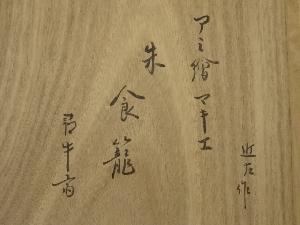 近左作
アミ繪マキエ
朱食籠
尋牛斎